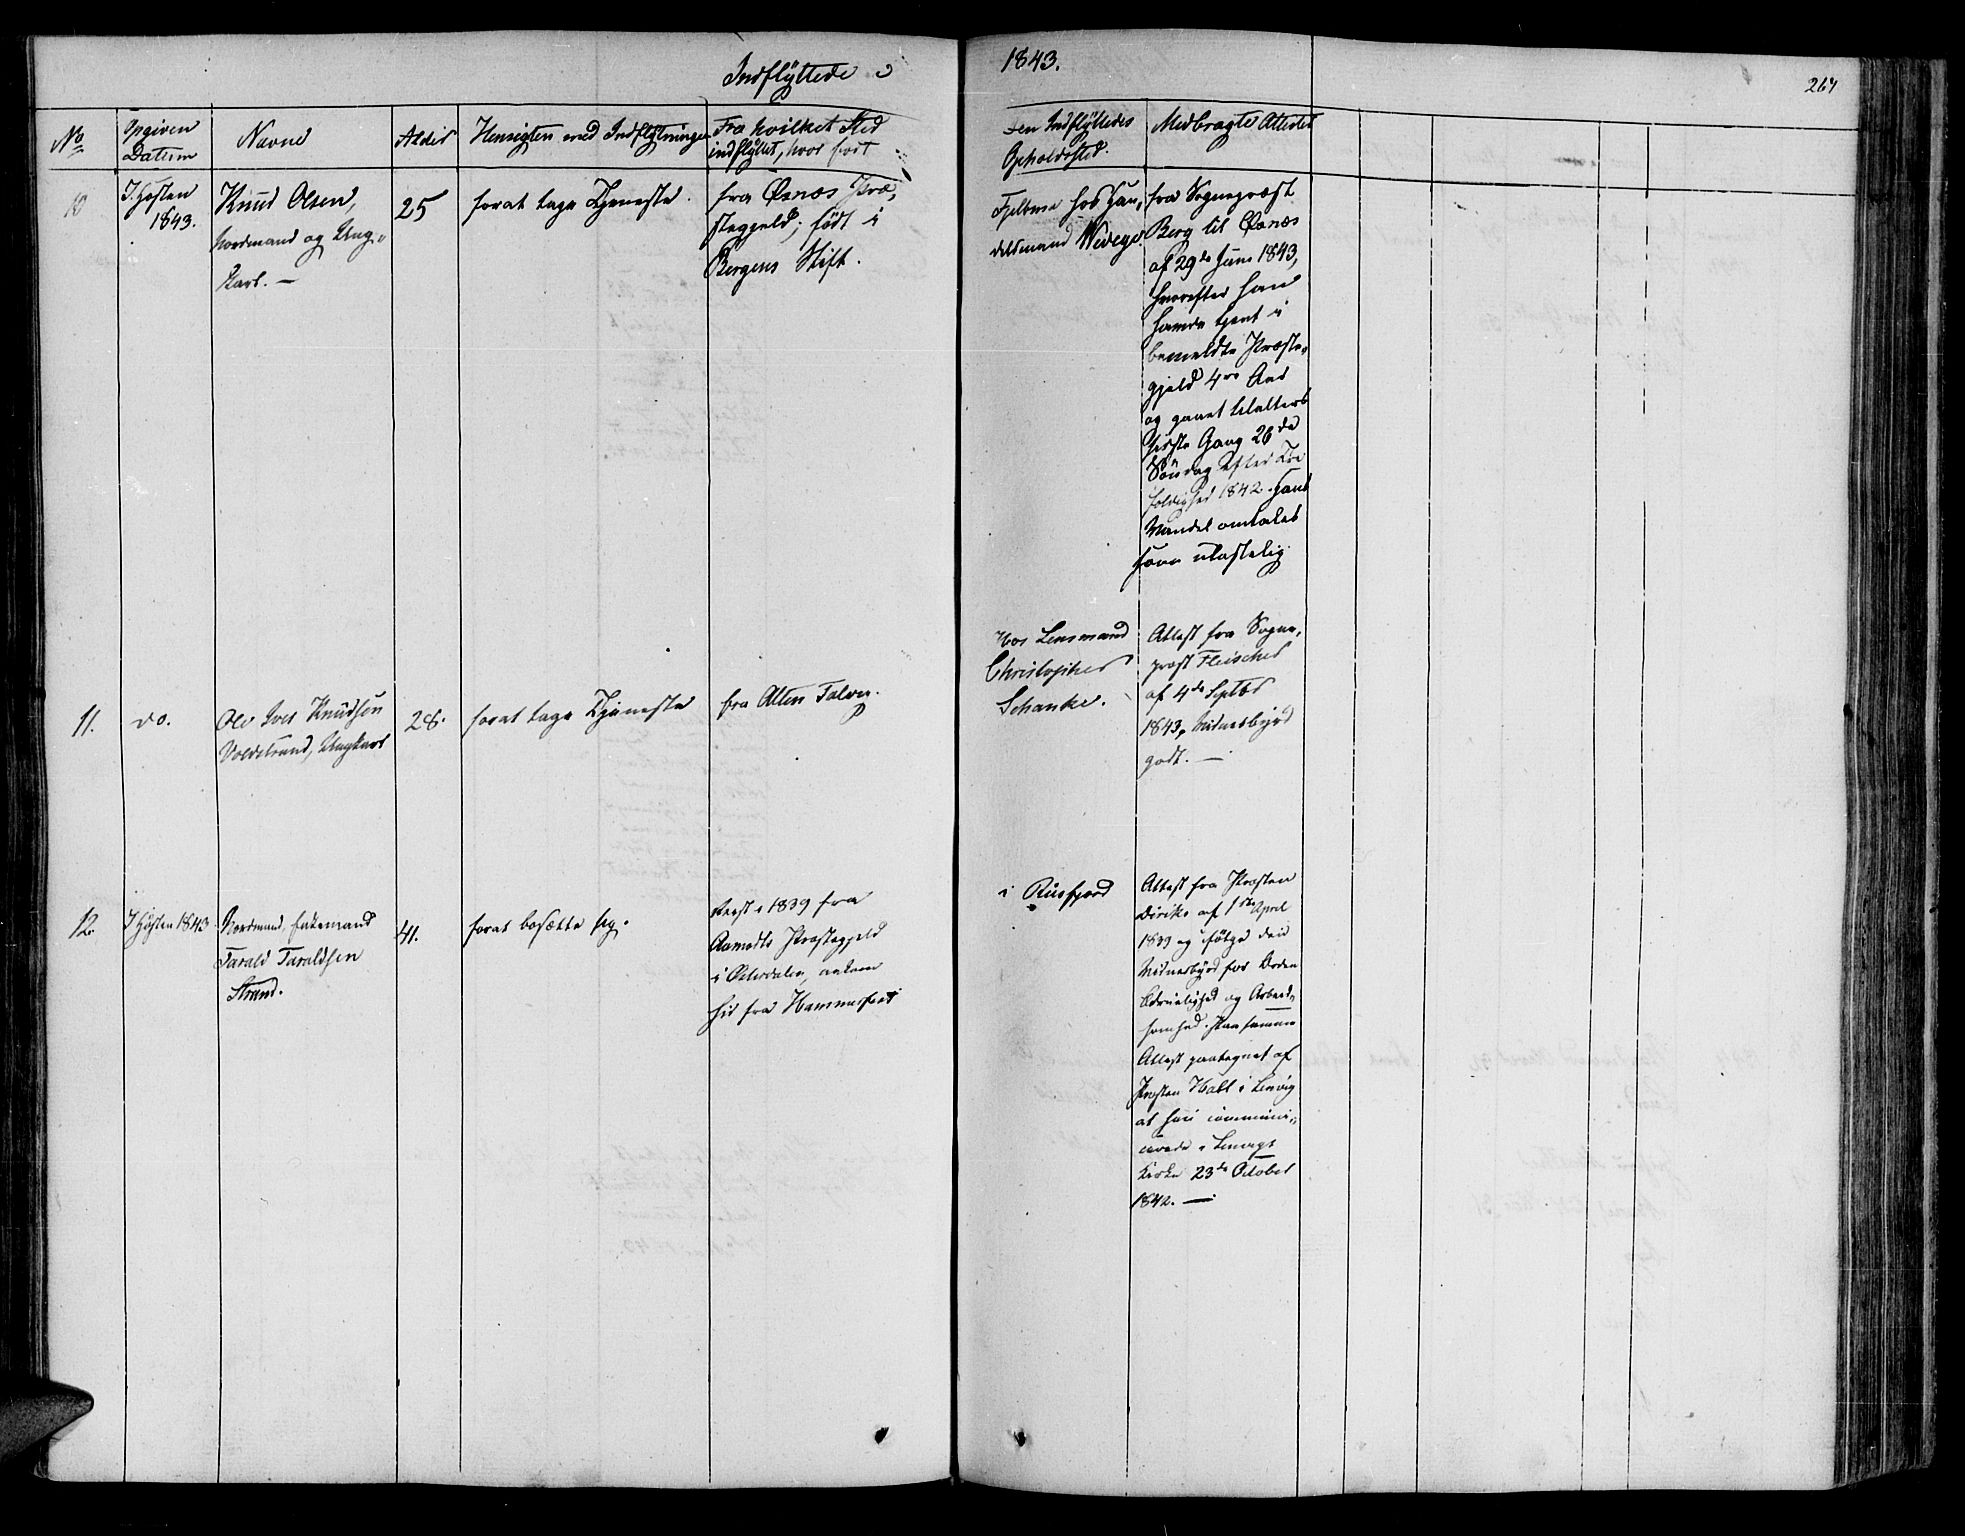 Indflyttede i
1843.
267
No
Opgiven
Datum
Navne
Alder
Hensigten med Indflytningen
Fra hvilket Sted
indflyttet, hvor født
Den Indflyttedes
Opholdssted.
Medbragte Attester
10
I Høsten
1843.
Knud Olsen,
Nordmand og Ung-
karl. —
25
forat tage Tjeneste.
fra Øxnæs Præ-
stegjeld; født i
Bergens Stift.
hos Han-
delsmand
fra Sognepræst
Berg til Øxnæs
af 29de Juni 1843,
hvorefter han
havde tjent i
bemeldte Præste-
gjeld 4re Aar
og gaaet til alters
sidste Gang 26de
Søndag efter Tre
foldighed 1842. Hans
Vandel omtales
som ulastelig.
11.
do.
Ole Iver Knudsen
Voldstrand, Ungkarl
28.
forat tage Tjeneste
fra Alten Talvig.
Hos Lensmand
Christopher
Schanke.
Attest fra Sogne-
præst Fleischer
af 4de Septbr
1843, Vidnesbyrd
godt. —
12.
I Høsten 1843
Nordmand, Enkemand
Tarald Taraldsen
Strand.
41.
forat bosætte sig.
Reist i 1839 fra
Aamodts Præstegjeld
i Østerdalen, ankom
hid fra Hammerfest
i Russfjord
Attest fra Præsten
Diriks af 1ste April
1839 og ifølge den
Vidnesbyrd for Orden
Ædruelighed og Arbeid-
somhed. Paa samme
Attest paategnet af
Præsten Hall i Lenvig
at han communi-
cerede i Lenvigs
Kirke 23de October
1842. —